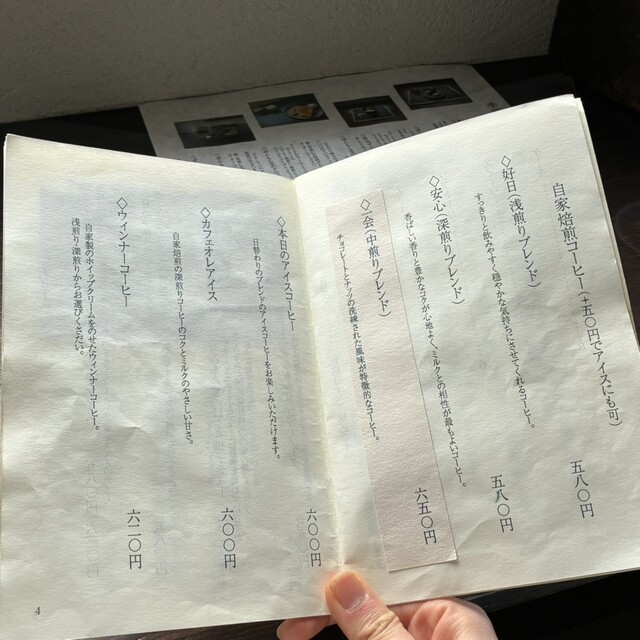 自家焙煎コーヒー(+五〇円でアイスにも可)
◇好日(浅煎りブレンド) 五八〇円
すっきりと飲みやすく穏やかな気持ちにさせてくれるコーヒー。
◇安心(深煎りブレンド) 五八〇円
香ばしい香りと豊かなコクが心地よく、ミルクとの相性が最もよいコーヒー。
◇一会(中煎りブレンド) 六五〇円
チョコレートとナッツの洗練された風味が特徴的なコーヒー。
◇本日のアイスコーヒー 六〇〇円
日替わりのブレンドのアイスコーヒーをお楽しみいただけます。
◇カフェオレアイス 六〇〇円
自家焙煎の深煎りコーヒーのコクとミルクのやさしい甘さ。
◇ウィンナーコーヒー 六二〇円
自家製のホイップクリームをのせたウィンナーコーヒー。
浅煎り・深煎りからお選びください。
4